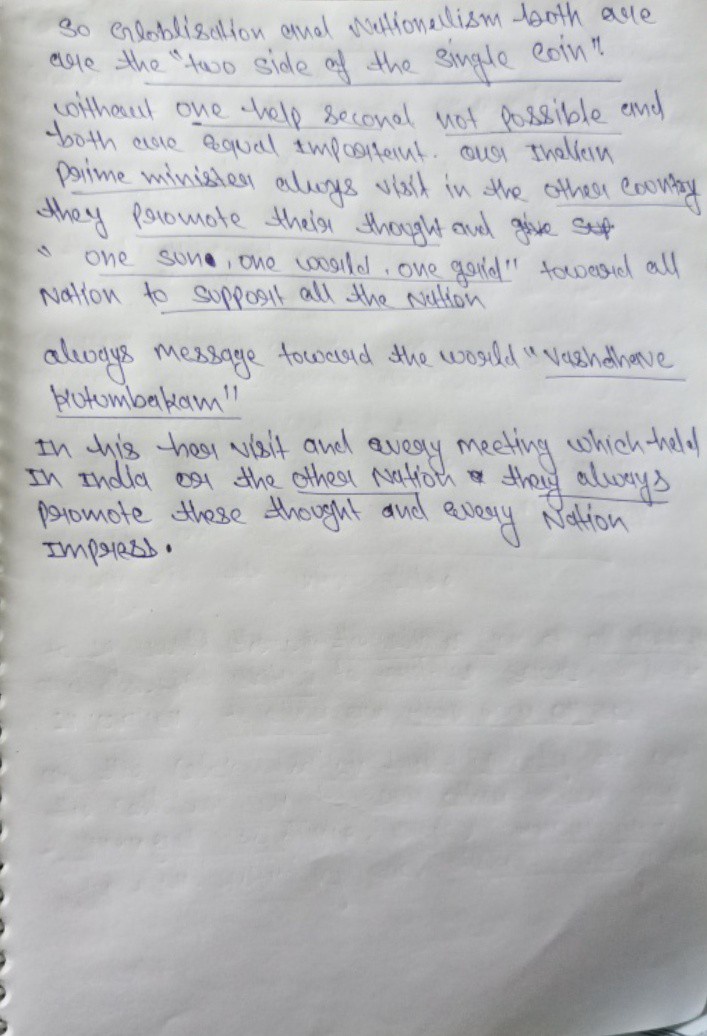 So Globlisation and Nationalism both are
are the "two side of the single coin".
without one help second not possible and
both are equal important. our Indian
prime minister always visit in the other country
they promote their thought and give
" one sun, one world, one grid" toward all
Nation to support all the Nation
always message toward the world "Vashdhave
kutumbakam"
In his her visit and every meeting which held
In India or the other Nation they always
promote these thought and every Nation
Impress.